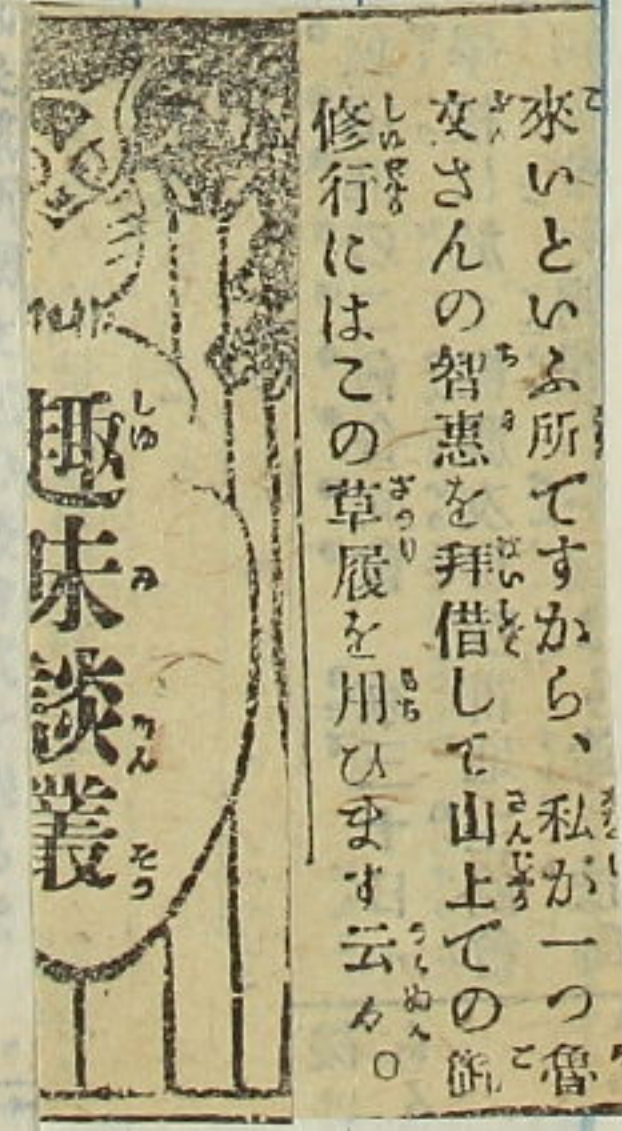 來いといふ所ですから、私が一つ魯
文さんの智惠を拜借して山上での御
修行にはこの草履を用ひます云々。
趣味談叢